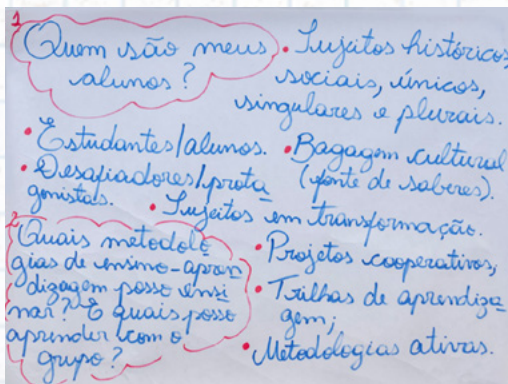 1
Quem são meus
alunos?
• Sujeitos históricos,
sociais, únicos,
singulares e plurais.
• Estudantes/alunos.
• Bagagem cultural
(fonte de saberes).
• Desafiadores/prota
gonistas.
• Sujeitos em transformação.
2
Quais metodolo
gias de ensino-apren
dizagem posso ensi
nar? E quais posso
aprender com o
grupo?
• Projetos cooperativos;
• Trilhas de aprendiza
gem;
• Metodologias ativas.